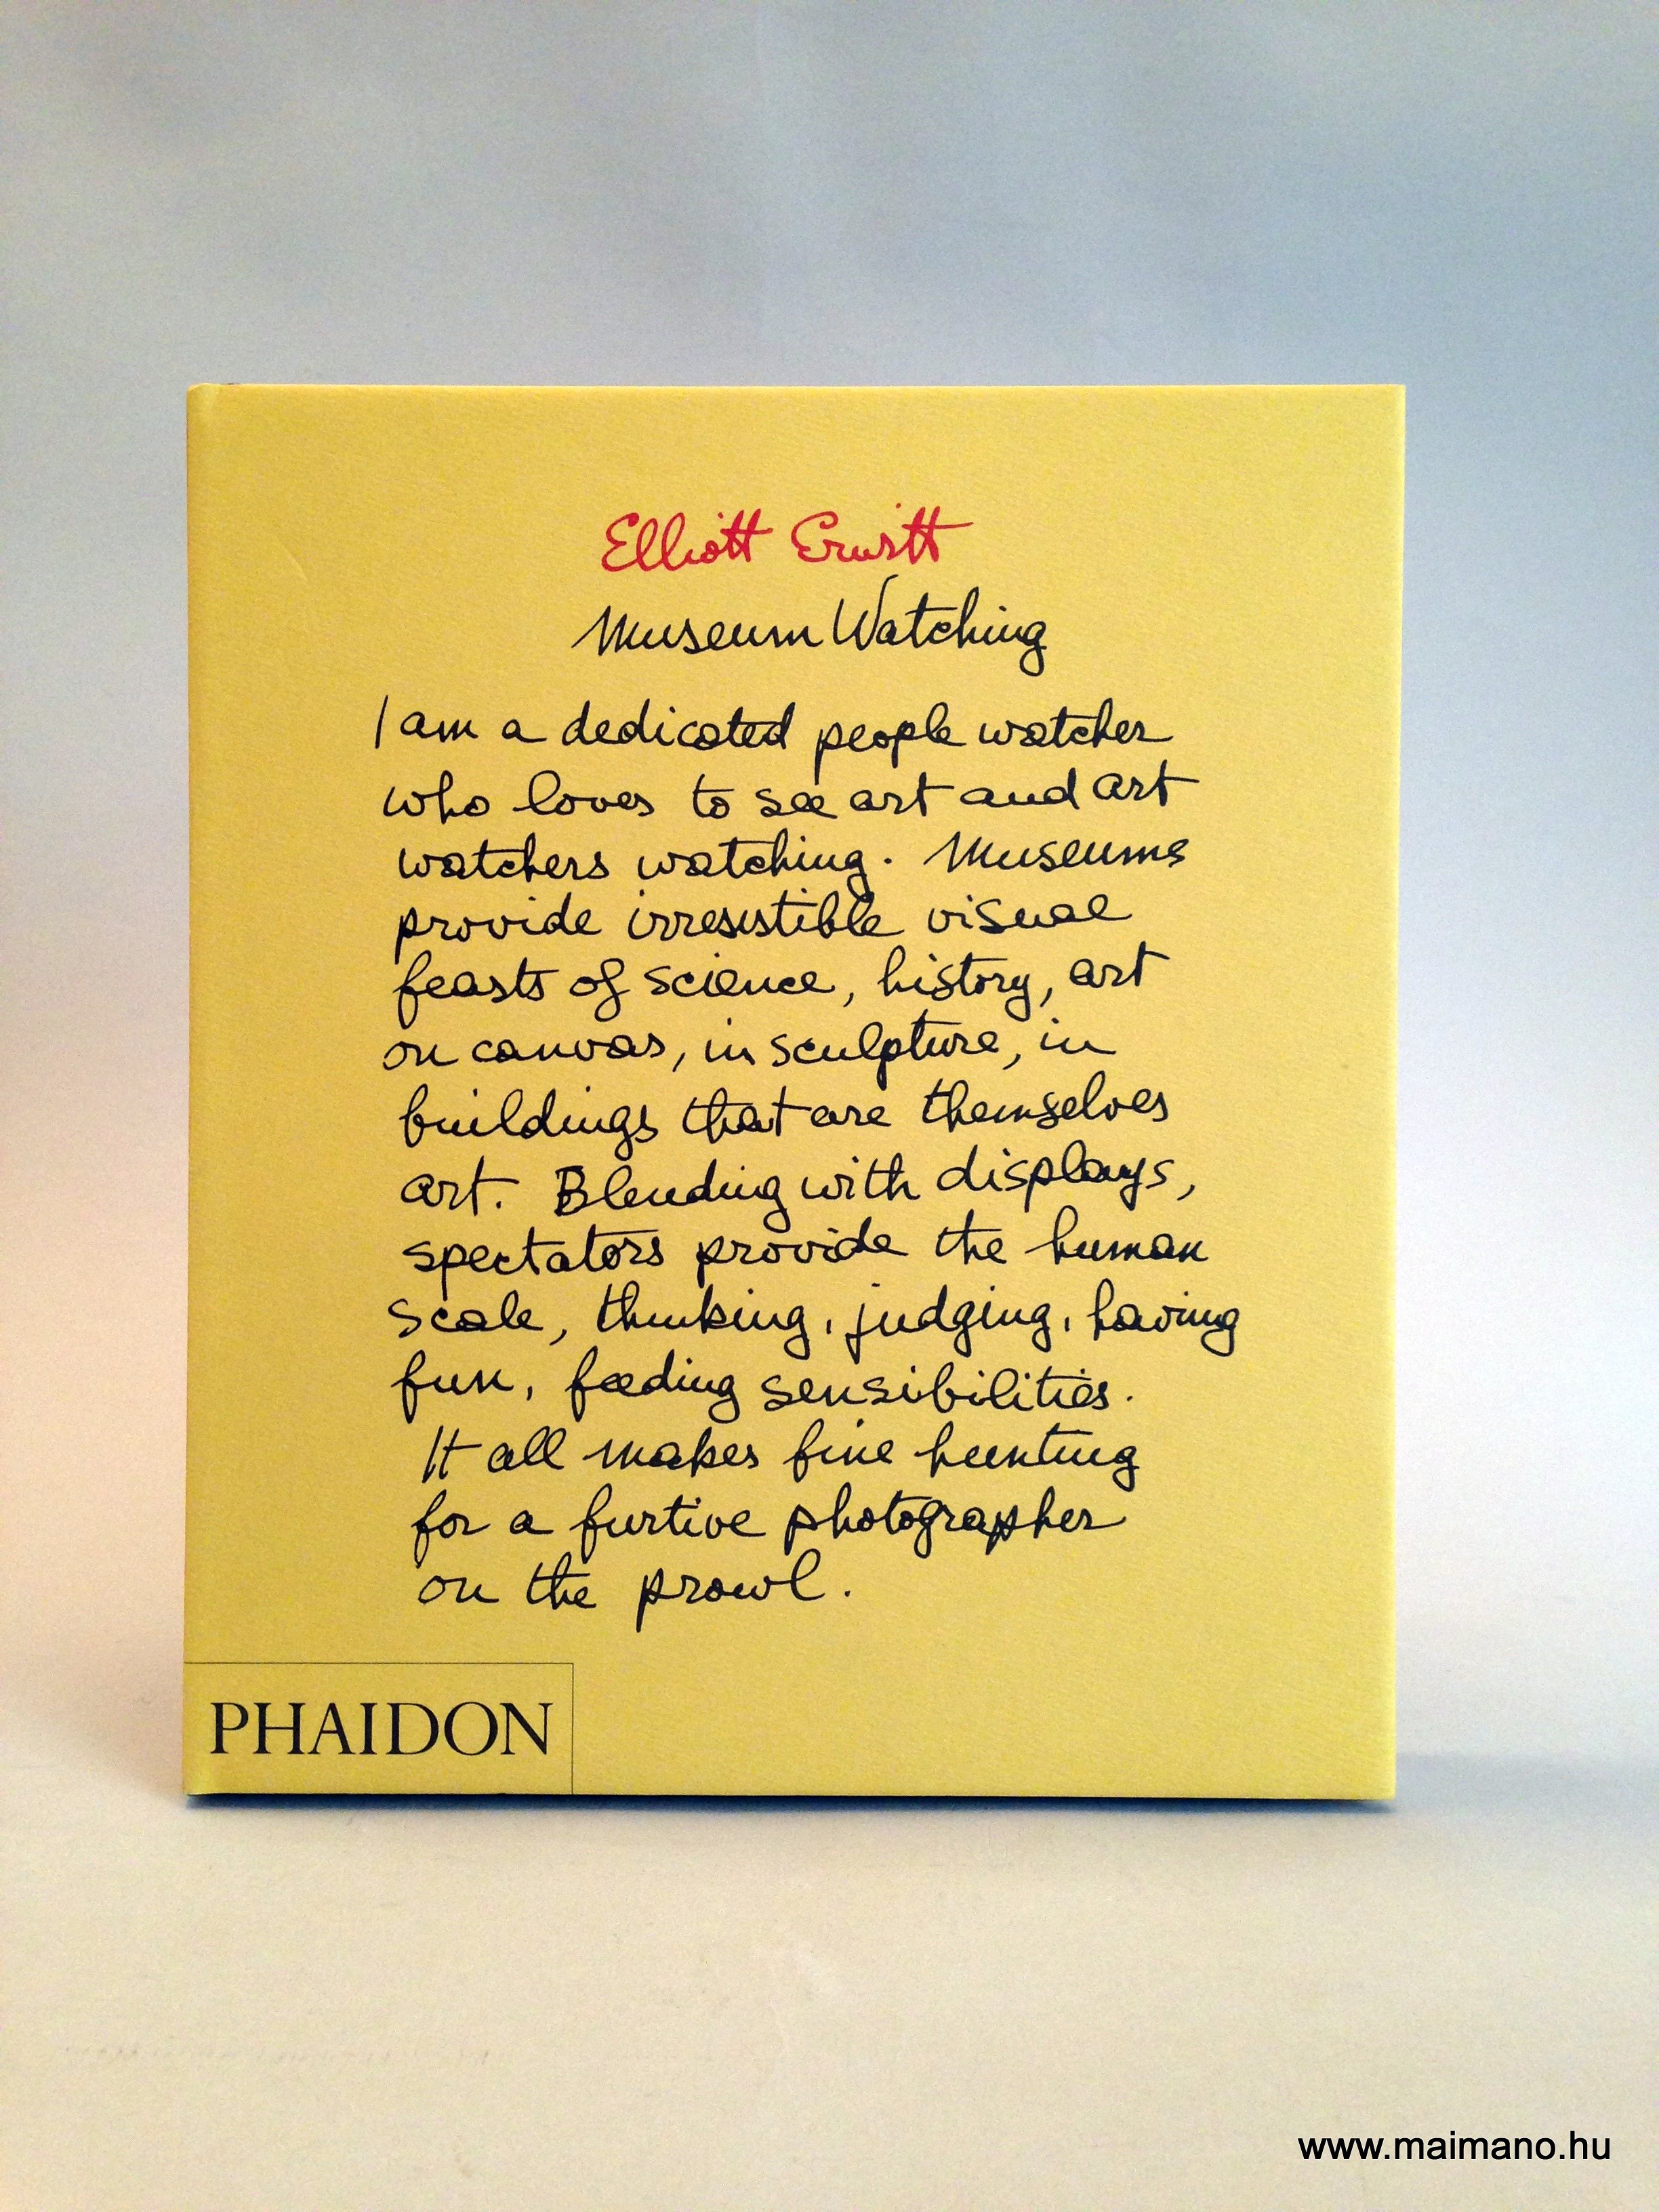 Elliott Erwitt
Museum Watching
I am a dedicated people watcher
who loves to see art and art
watchers watching. Museums
provide irresistible visual
feasts of science, history, art
on canvas, in sculpture, in
buildings that are themselves
art. Blending with displays,
spectators provide the human
scale, thinking, judging, having
fun, feeding sensibilities.
It all makes fine hunting
for a furtive photographer
on the prowl.
PHAIDON
www.maimano.hu